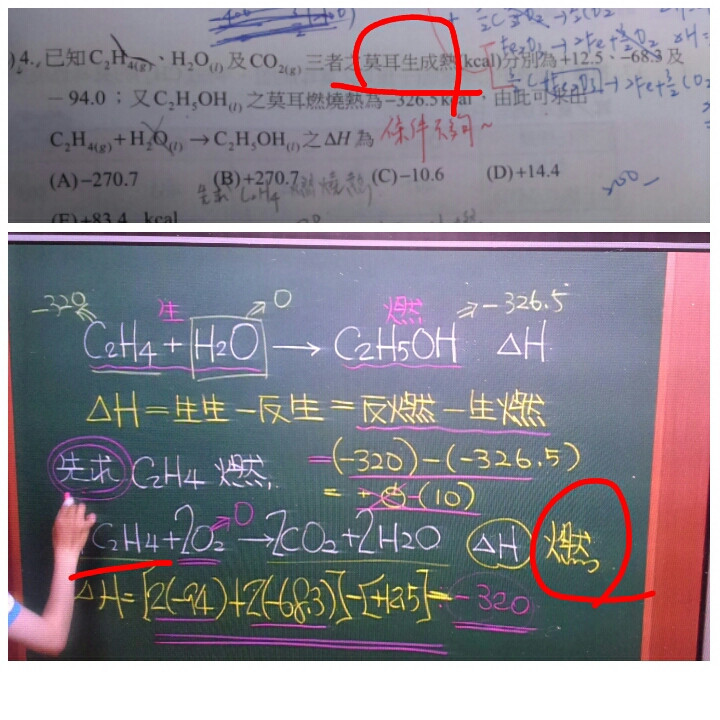 )4. 已知C₂H₄₍g₎、H₂O₍l₎及CO₂₍g₎三者之莫耳生成熱(kcal)分別為+12.5、-68.3及
-94.0；又C₂H₅OH₍l₎之莫耳燃燒熱為-326.5 kcal，由此可求出
C₂H₄₍g₎+H₂O₍l₎→C₂H₅OH₍l₎之ΔH為 條件不夠~
(A)-270.7 (B)+270.7 (C)-10.6 (D)+14.4
先求 C₂H₄ 燃燒熱
(E)+83.4 kcal
-320 生 0 燃 -326.5
C₂H₄+H₂O→C₂H₅OH ΔH
ΔH=生生-反生=反燃-生燃
先求 C₂H₄ 燃, =(-320)-(-326.5)
(10)
C₂H₄+2O₂→2CO₂+2H₂O ΔH 燃
0
ΔH=[2(-94)+2(-68.3)]-[+12.5]=-320